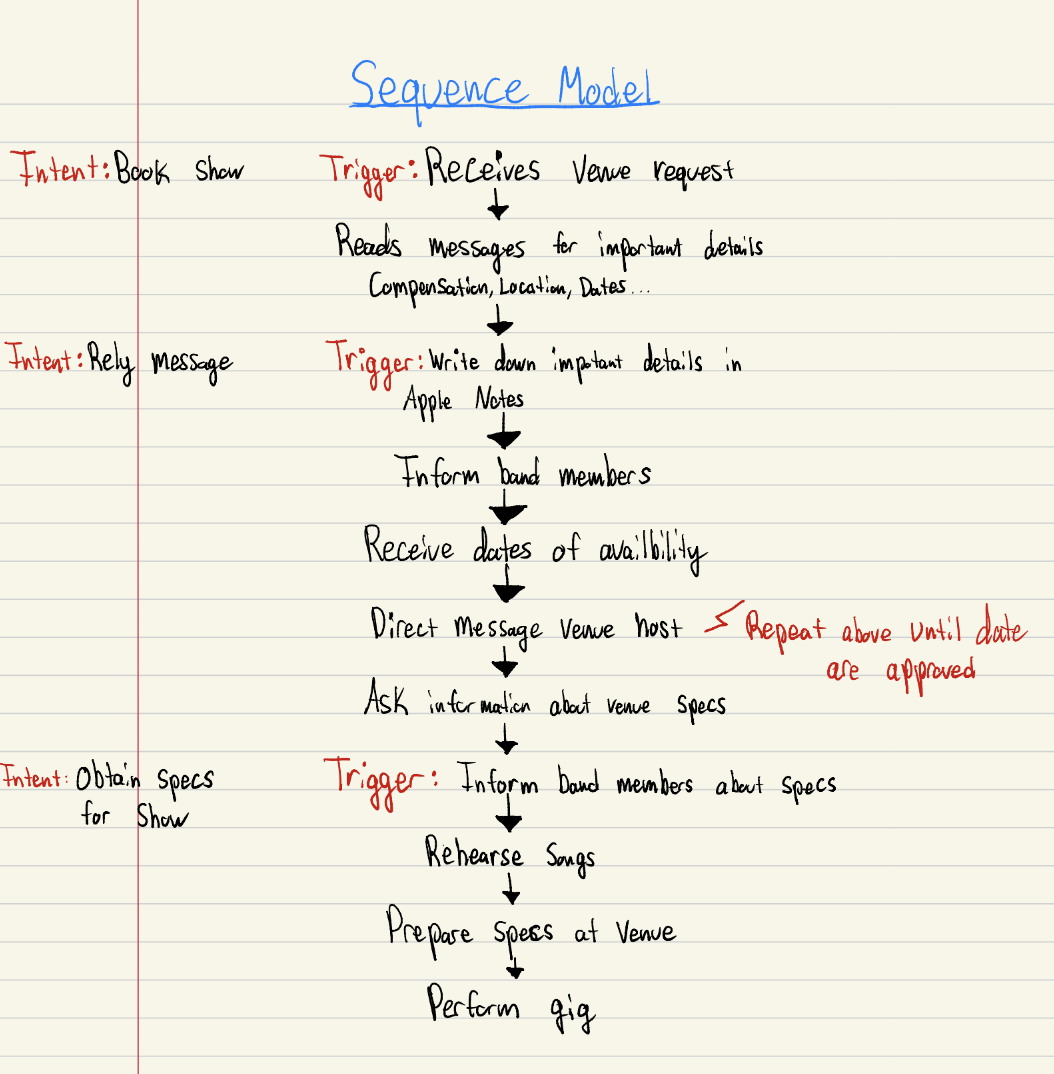 Sequence Model
Intent: Book Show
Trigger: Receives Venue request
Reads messages for important details
Compensation, Location, Dates...
Intent: Rely message
Trigger: Write down impotant details in
Apple Notes
Inform band members
Receive dates of availbility
Direct Message Venue host
Repeat above until date
are approved
Ask information about venue specs
Intent: Obtain specs
for Show
Trigger: Inform band members about specs
Rehearse Songs
Prepare Specs at Venue
Perform gig